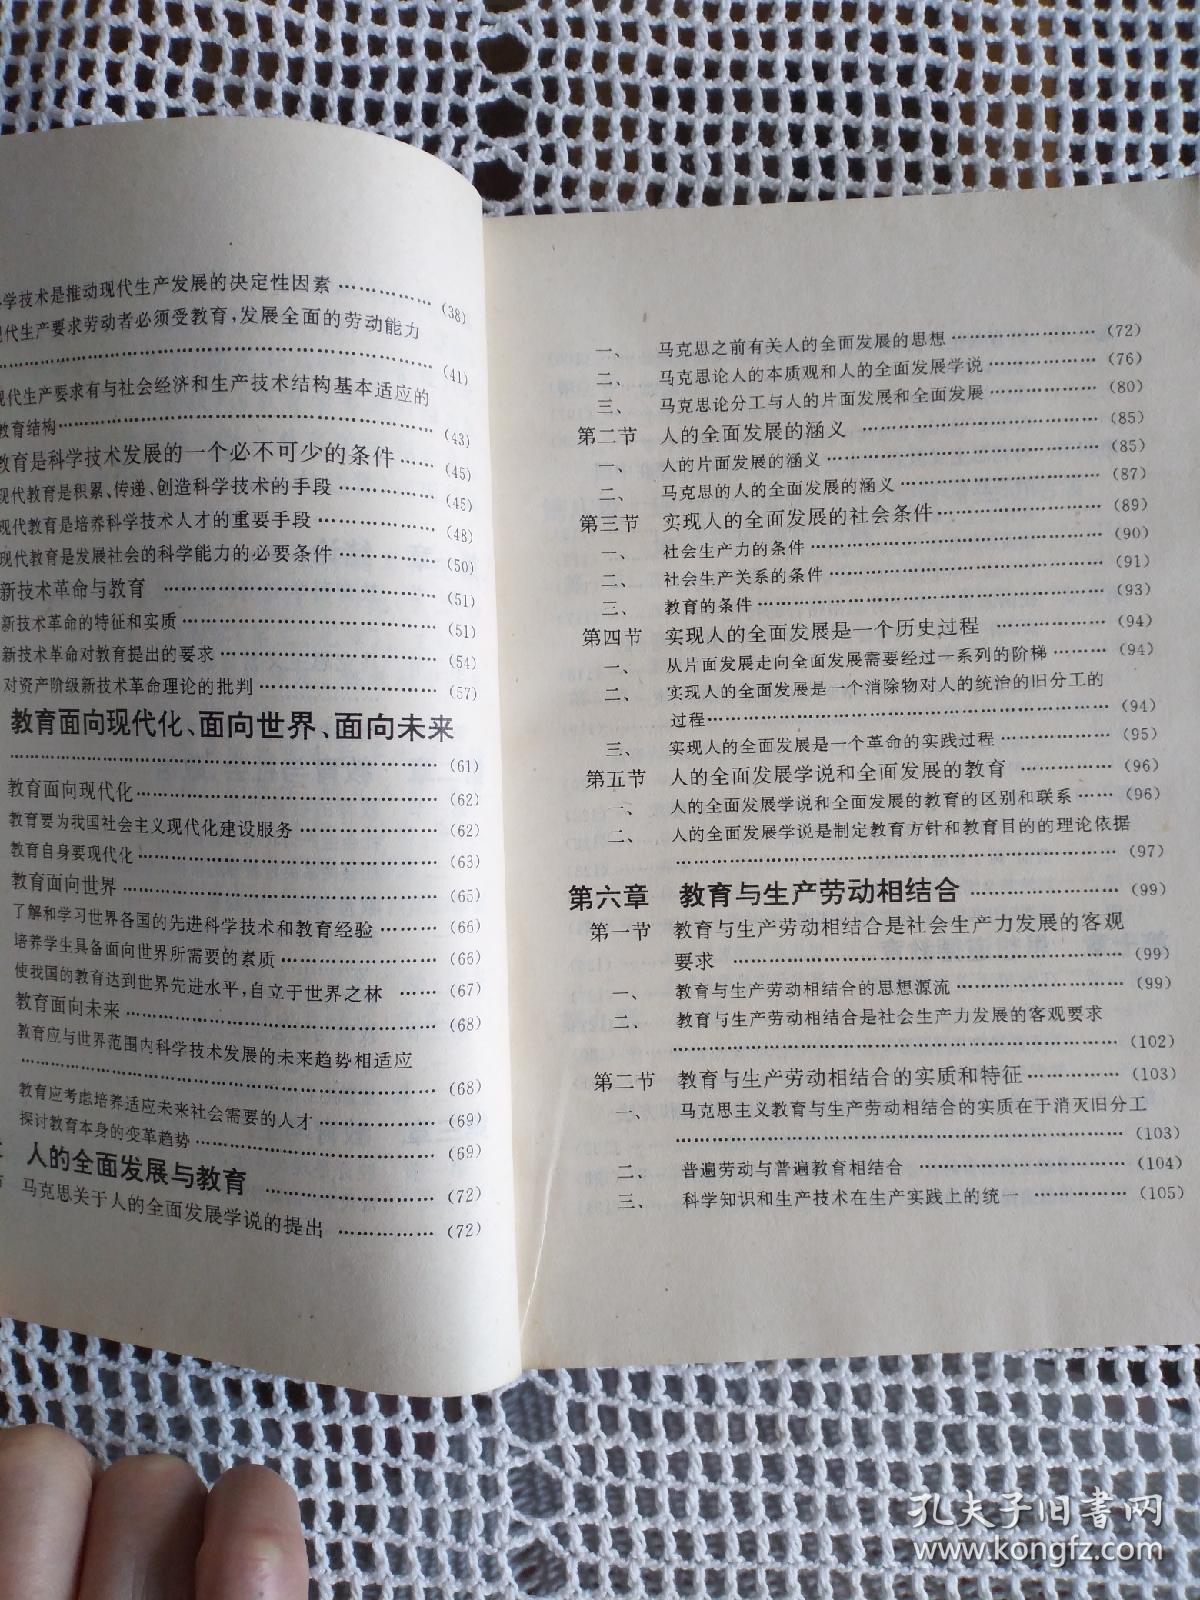 学技术是推动现代生产发展的决定性因素 …………… (38)
代生产要求劳动者必须受教育，发展全面的劳动能力
………………………………………………………… (41)
现代生产要求有与社会经济和生产技术结构基本适应的
教育结构………………………………………………… (43)
教育是科学技术发展的一个必不可少的条件 …… (45)
现代教育是积累、传递、创造科学技术的手段 ………… (45)
现代教育是培养科学技术人才的重要手段 …………… (48)
现代教育是发展社会的科学能力的必要条件 ………… (50)
新技术革命与教育 ……………………………… (51)
新技术革命的特征和实质 ……………………………… (51)
新技术革命对教育提出的要求 ………………………… (54)
对资产阶级新技术革命理论的批判 …………………… (57)
教育面向现代化、面向世界、面向未来
………………………………………………………… (61)
教育面向现代化 ……………………………………… (62)
教育要为我国社会主义现代化建设服务 ……………… (62)
教育自身要现代化 ……………………………………… (63)
教育面向世界 ………………………………………… (65)
了解和学习世界各国的先进科学技术和教育经验 ……… (66)
培养学生具备面向世界所需要的素质 ………………… (66)
使我国的教育达到世界先进水平，自立于世界之林 …… (67)
教育面向未来 ………………………………………… (68)
教育应与世界范围内科学技术发展的未来趋势相适应
………………………………………………………… (68)
教育应考虑培养适应未来社会需要的人才 …………… (69)
探讨教育本身的变革趋势 ……………………………… (69)
人的全面发展与教育 …………………… (72)
马克思关于人的全面发展学说的提出 …………… (72)
一、 马克思之前有关人的全面发展的思想 …………………… (72)
二、 马克思论人的本质观和人的全面发展学说 …………… (76)
三、 马克思论分工与人的片面发展和全面发展 …………… (80)
第二节 人的全面发展的涵义 ……………………………… (85)
一、 人的片面发展的涵义 …………………………………… (85)
二、 马克思的人的全面发展的涵义 ………………………… (87)
第三节 实现人的全面发展的社会条件 …………………… (89)
一、 社会生产力的条件 ……………………………………… (90)
二、 社会生产关系的条件 …………………………………… (91)
三、 教育的条件 ……………………………………………… (93)
第四节 实现人的全面发展是一个历史过程 …………… (94)
一、 从片面发展走向全面发展需要经过一系列的阶梯 ……… (94)
二、 实现人的全面发展是一个消除物对人的统治的旧分工的
过程 ……………………………………………………… (94)
三、 实现人的全面发展是一个革命的实践过程 …………… (95)
第五节 人的全面发展学说和全面发展的教育 ………… (96)
一、 人的全面发展学说和全面发展的教育的区别和联系 …… (96)
二、 人的全面发展学说是制定教育方针和教育目的的理论依据
………………………………………………………… (97)
第六章 教育与生产劳动相结合 ………………… (99)
第一节 教育与生产劳动相结合是社会生产力发展的客观
要求 …………………………………………………… (99)
一、 教育与生产劳动相结合的思想源流 …………………… (99)
二、 教育与生产劳动相结合是社会生产力发展的客观要求
………………………………………………………… (102)
第二节 教育与生产劳动相结合的实质和特征 …………… (103)
一、 马克思主义教育与生产劳动相结合的实质在于消灭旧分工
………………………………………………………… (103)
二、 普遍劳动与普遍教育相结合 …………………………… (104)
三、 科学知识和生产技术在生产实践上的统一 …………… (105)
孔夫子旧书网
www.kongfz.com